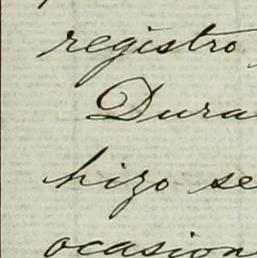 registro
Dura
hizo se
ocasion